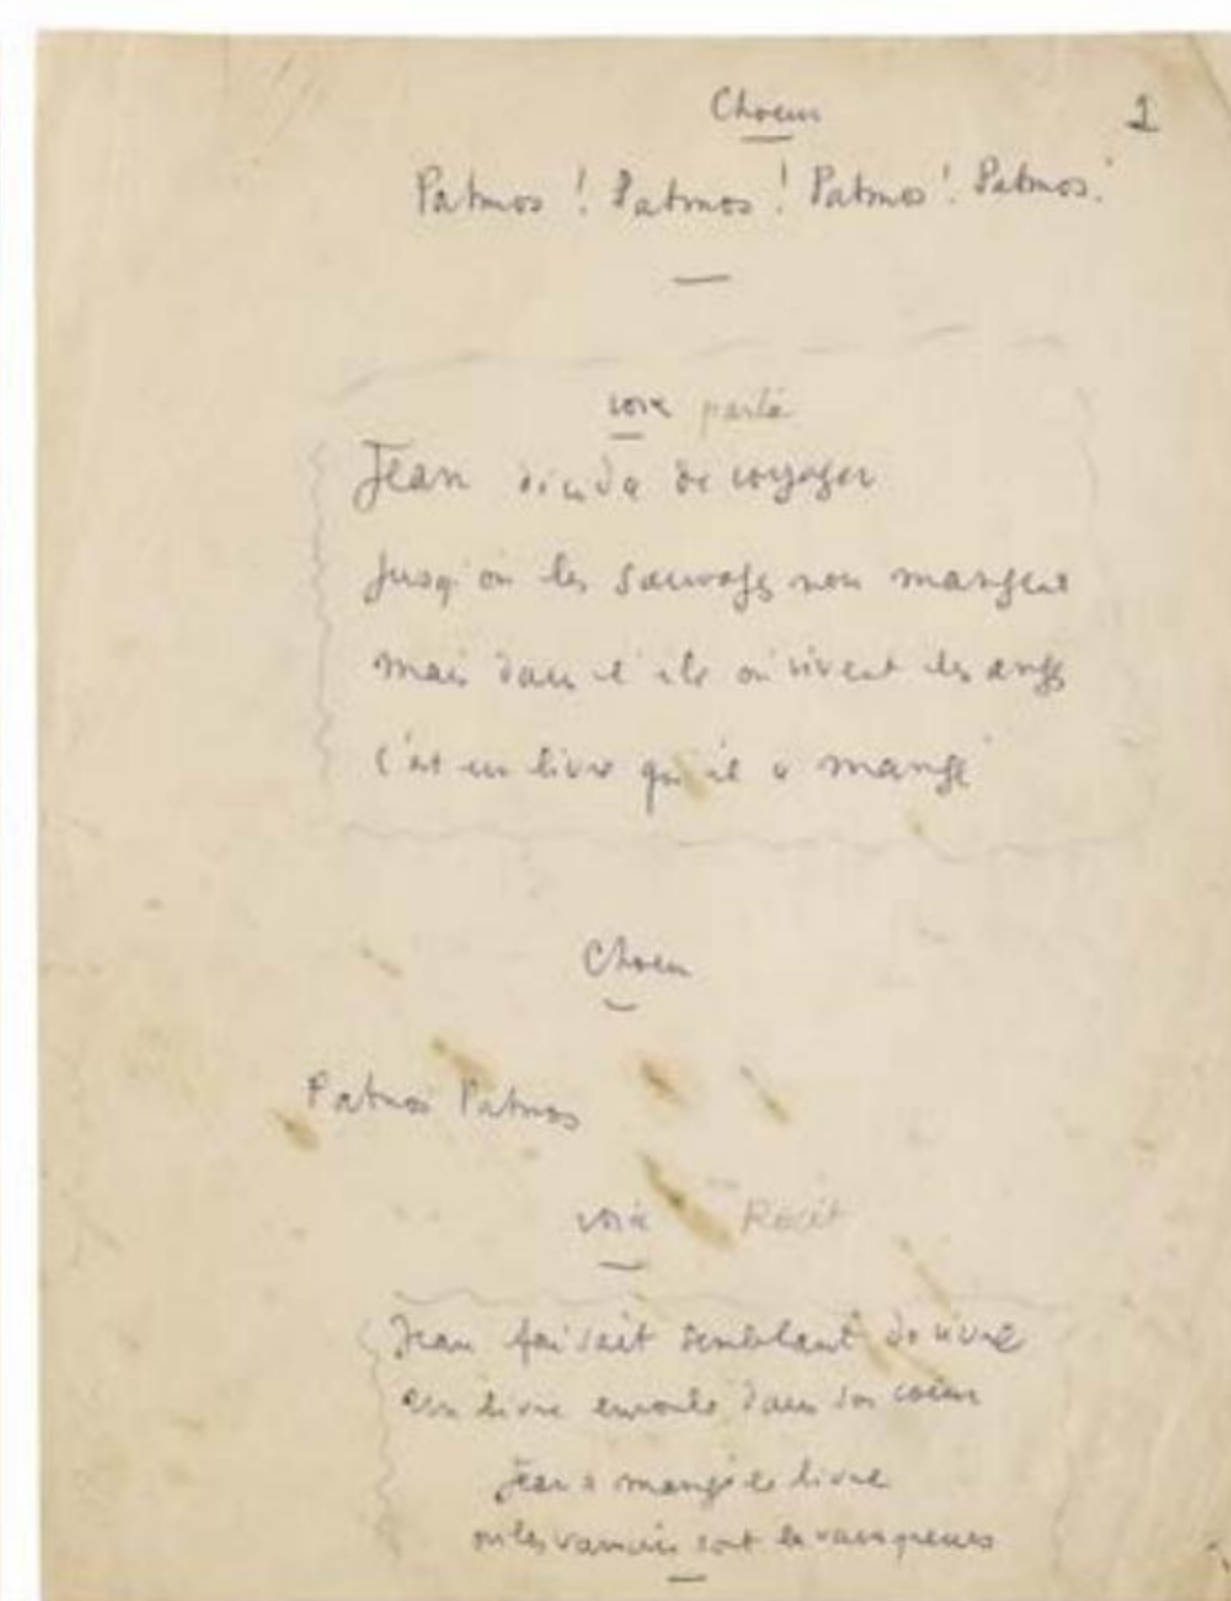 Choeur
1
Patmos ! Patmos ! Patmos ! Patmos !
voix parlé
Jean décida de voyager
jusqu'où les sauvages nous mangent
mais dans l'île où vivent les anges
c'est un livre qu'il a mangé
Choeur
Patmos Patmos
voix Récit
Jean faisait semblant de vivre
un livre enroulé dans son coeur
Jean a mangé le livre
où les vaincus sont les vainqueurs